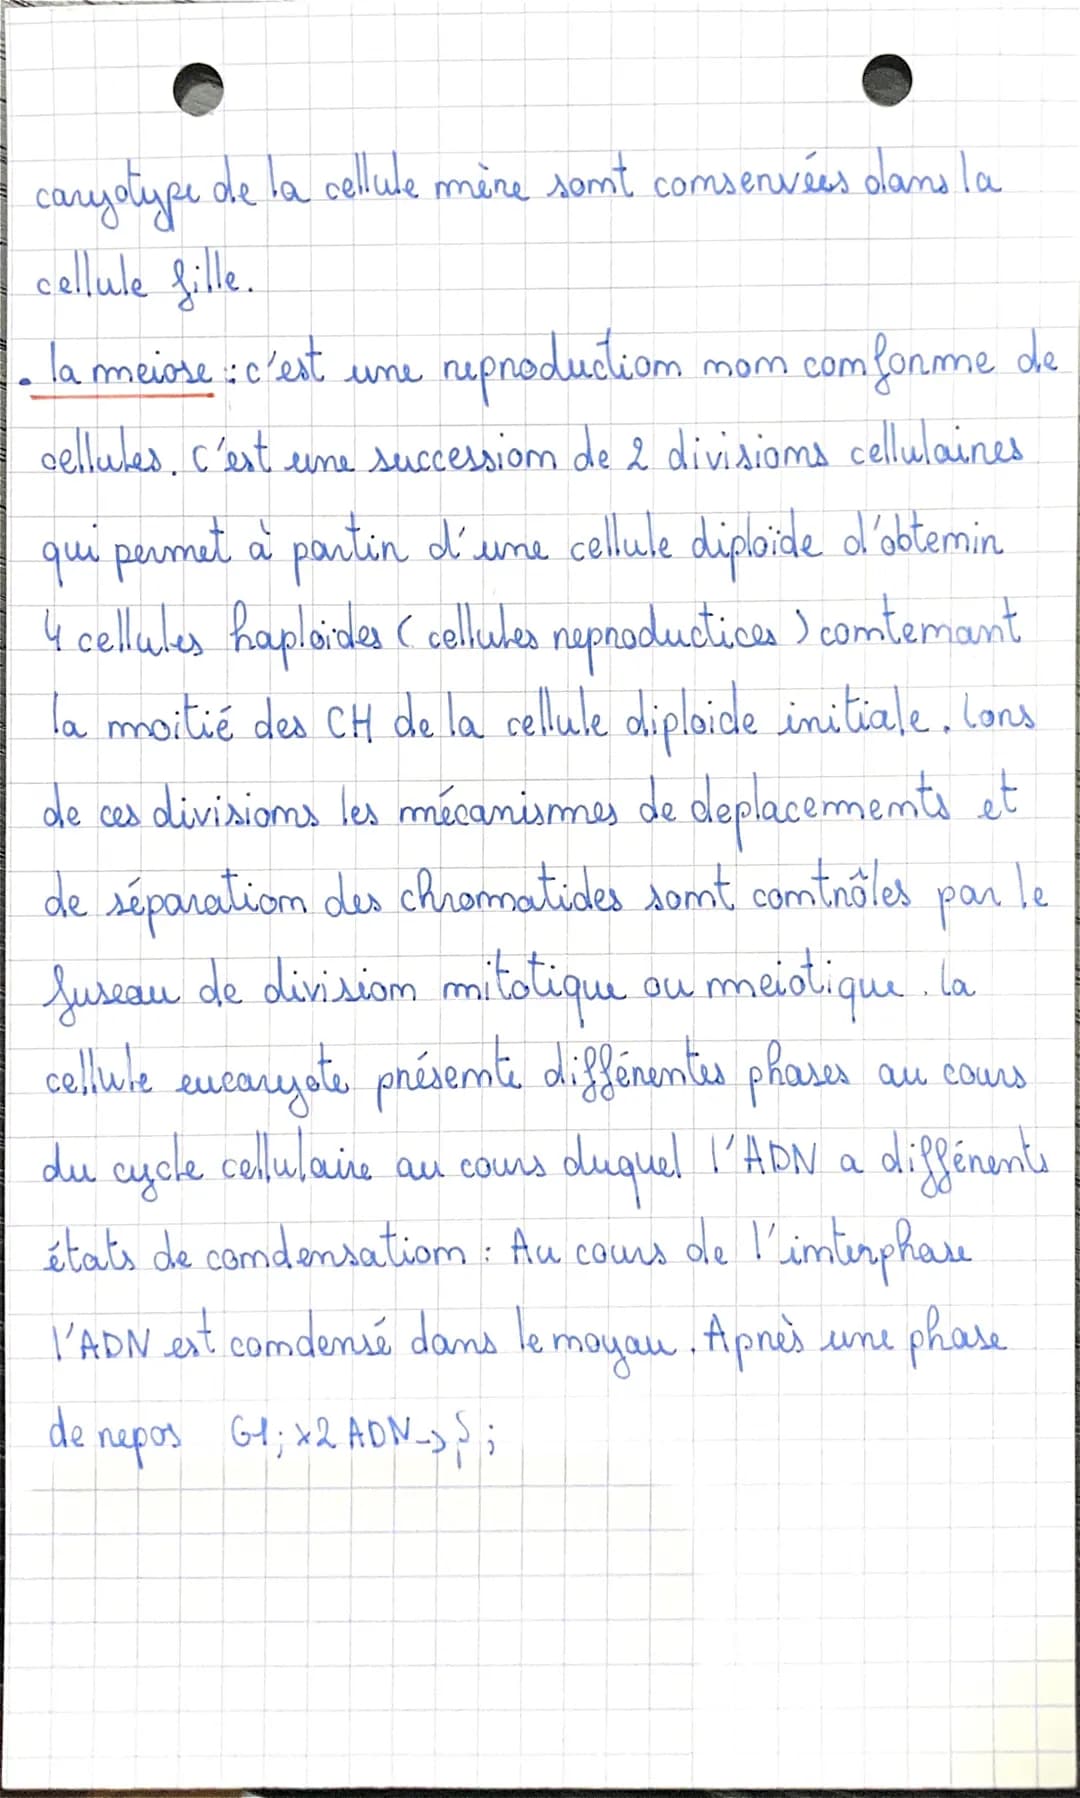 caryotype de la cellule mère sont conservées dans la
cellule fille.
. la meiose : c'est une reproduction non conforme de
cellules. C'est une succession de 2 divisions cellulaires
qui permet à partir d'une cellule diploïde d'obtenir
4 cellules haploïdes (cellules reproductices) contenant
la moitié des CH de la cellule diploide initiale. Lors
de ces divisions les mécanismes de deplacements et
de séparation des chromatides sont contrôles par le
fuseau de division mitotique ou meiotique. La
cellule eucaryote présente différentes phases au cours
du cycle cellulaire au cours duquel l'ADN a différents
états de condensation : Au cours de l'interphase
l'ADN est condensé dans le noyau. Après une phase
de repos G1; x2 ADN -> S ;